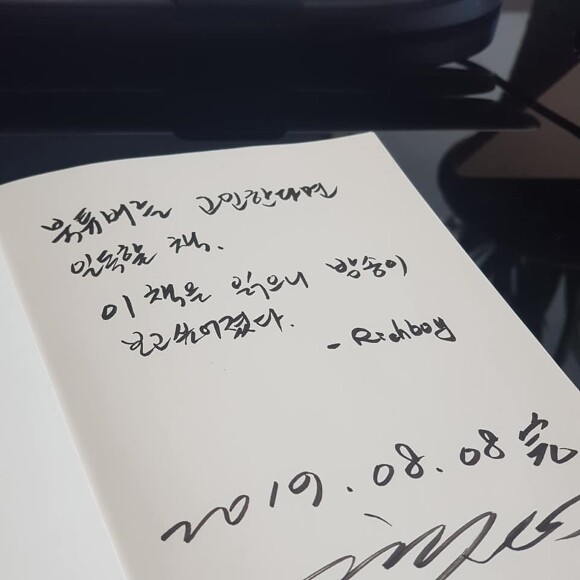 북튜버를 고민한다면
일독할 책.
이 책을 읽으니 방송이
보고싶어졌다.
- Richboy
2019.08.08 完